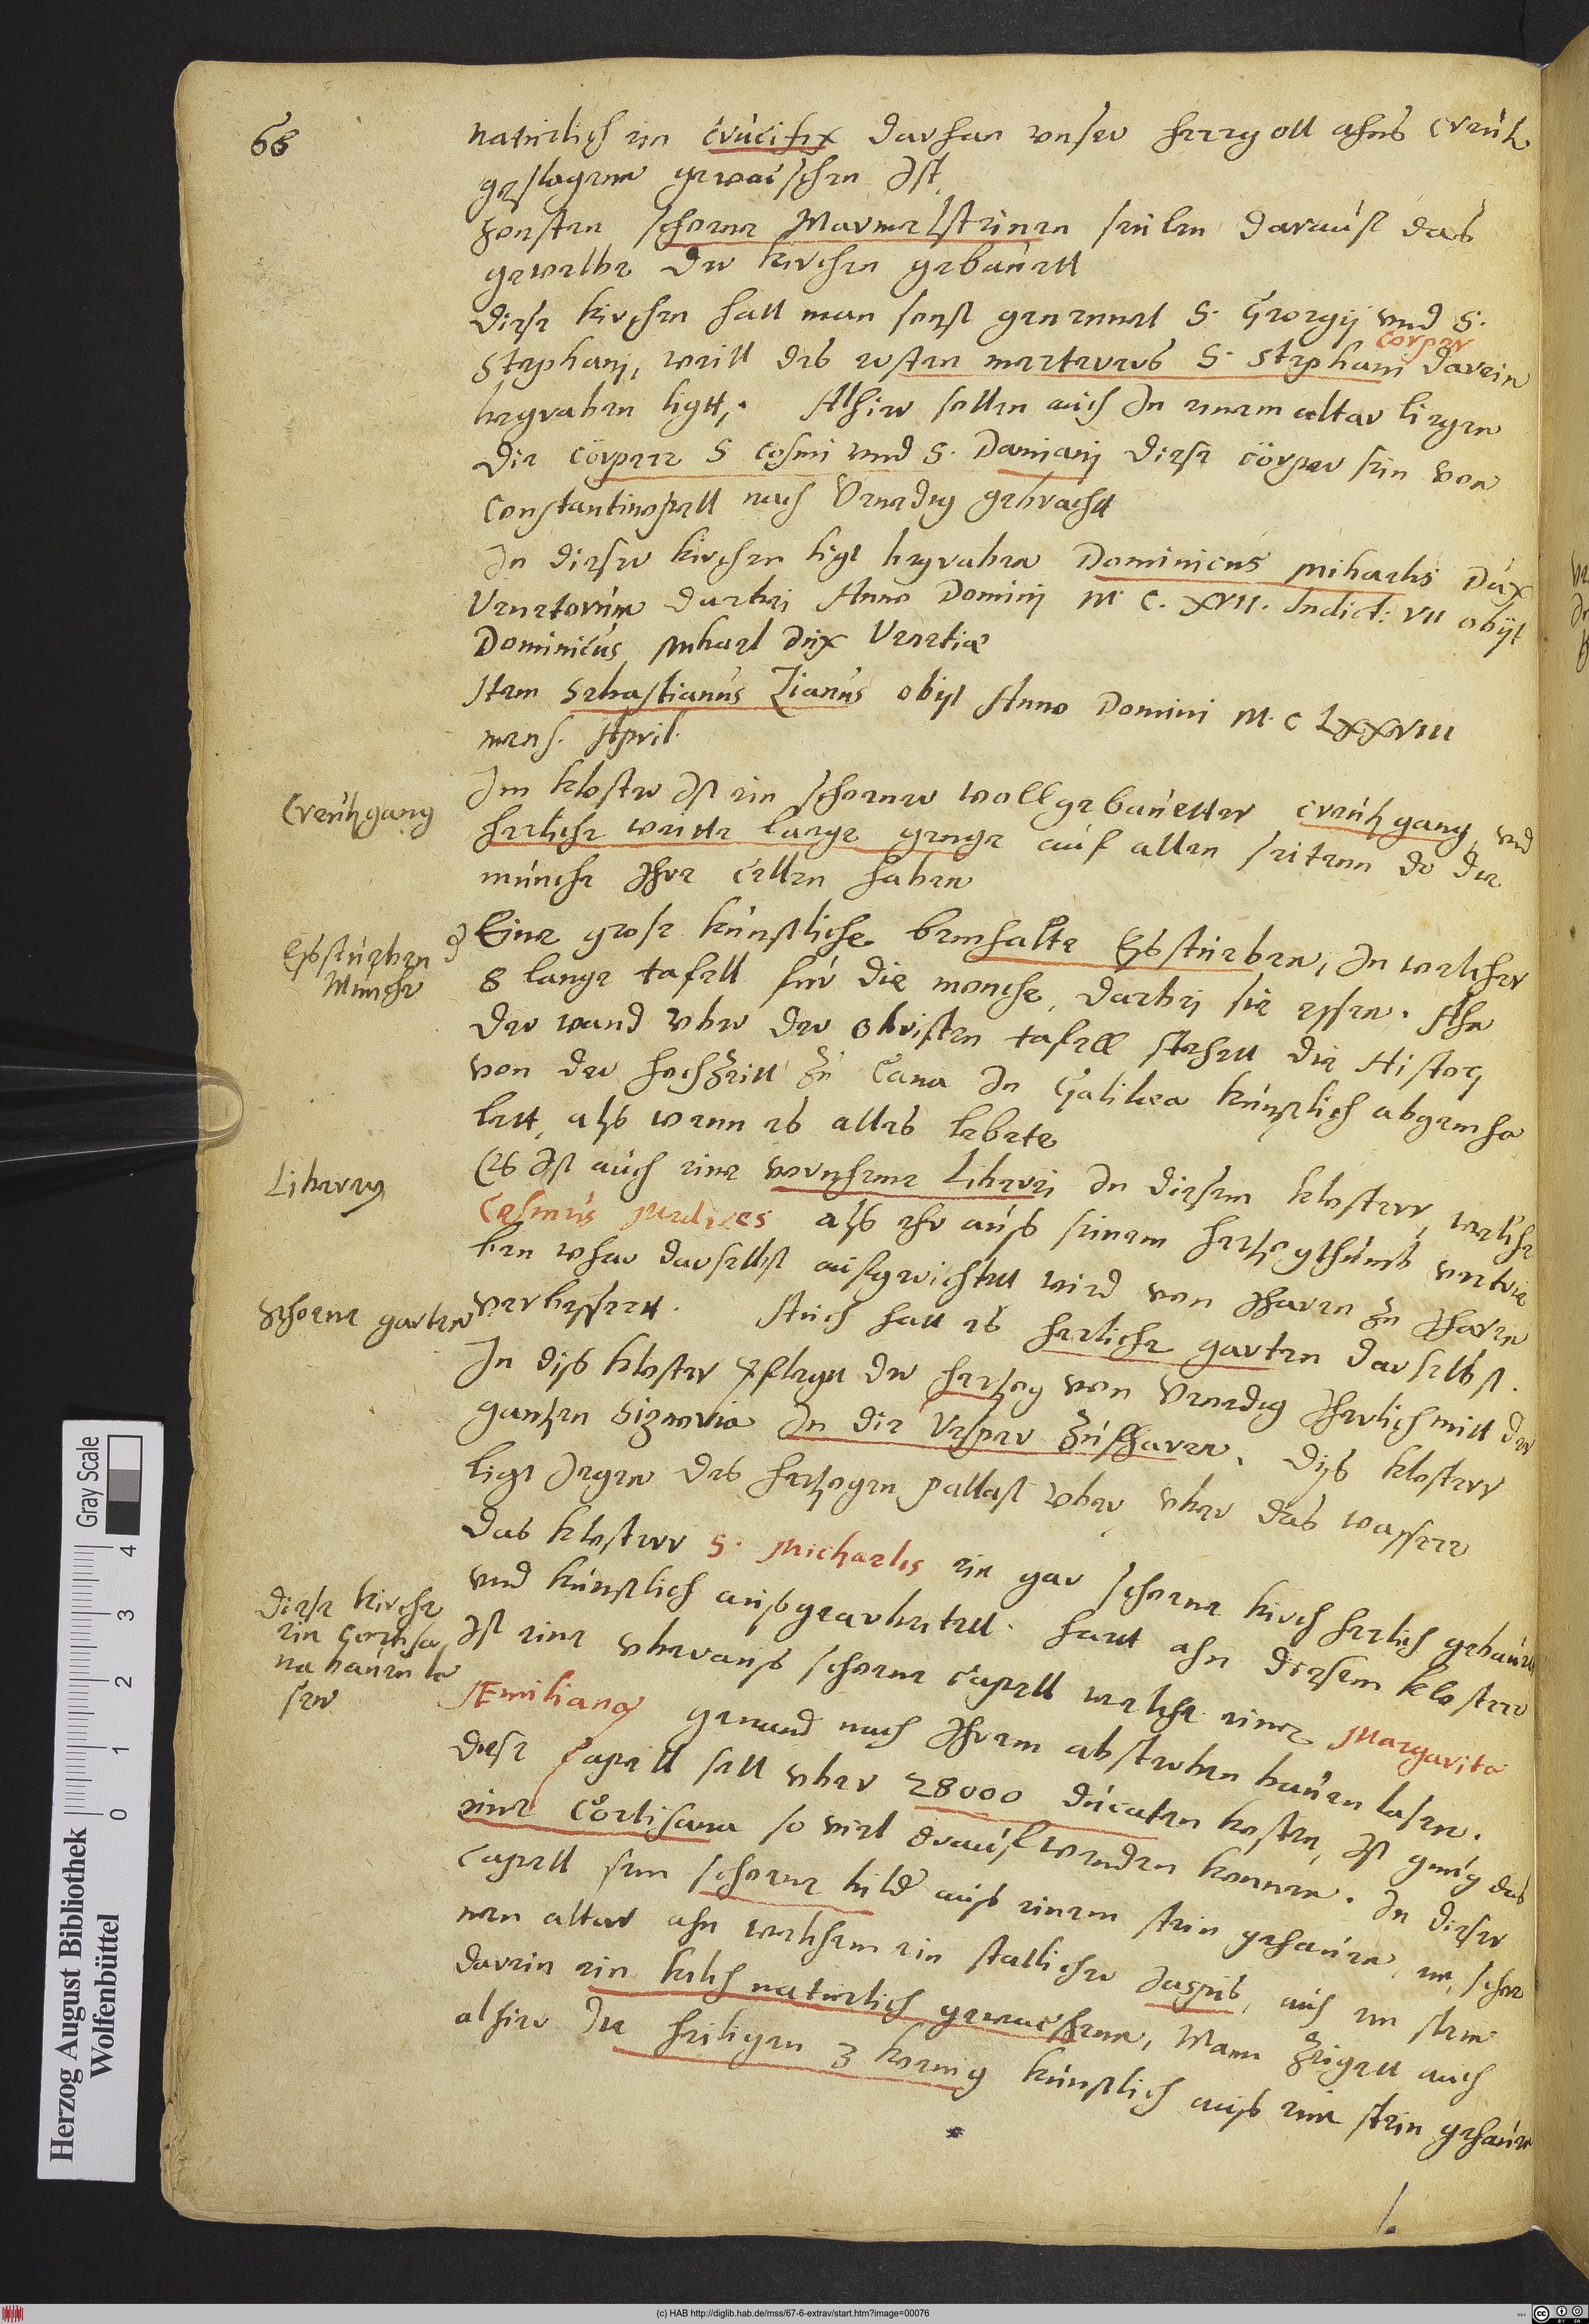 68
naturlich ein Crucifix darhan unser herrgott ahns Creutz
geslagenn gewacschen Ist,
Zonsten schoene Marmelsteinen seulen darauf das
gewelbe der kirchen gebauett
Diese kirchen hatt man sonst genennet S. Georgij und S.
Stephanj, weill des ersten merterers S. Stephani Corper darein
begraben ligtt. Alhier sollen auch In einem altar liegen
Die Cörpere S Cosmi und S. Damianij diese cörper sein von
Constantinopell nach Venedig gebracht
In dieser kirchen ligt begraben Dominicus Mihaelis Dux
Venetorum darbei Anno Dominj M C. XVII. Indict: VII obijt
Dominicus Mihael Dux Venetiæ
Item Sebastianus Zianus obijt Anno Domini M. C LXXVIII
mens. April.
Creutzgang
Im kloster Ist ein schoener wollgebauetter Creutzgang, und
herliche weitte lange genge auf allen seitenn do die
munche Ihre Cellen haben
Esstueben d
Munche
Eine grose kunstliche bemhalte Esstueben, In welcher
8 lange tafell fur die monche, darbej sie essen. Ahn
der wand uber der obristen tafell stehett die Historj
von der hochzeitt zu Cana In Galilea kunstlich abgemha
lett, als wenn es alles lebete
Liberey
Es Ist auch eine vornheme Liberei In diesem klosterr, welche
Cosmus Medices als ehr auss seinem hertzogthumb vertrie
ben whar darselbst aufgerichtett wird von Jharen zu Jharen
Schoene garten
verbessert. Auch hatt es herliche garten darselbst.
In diss kloster pfleget der hertzog von Venedig Jherlich mitt der
gantzen Signoria In die Vesper zufharen. Diss klosterr
ligt Iegen des hertzogen pallast uber, uber das wasserr
Das klosterr S. Michaelis ein gar schoene kirch herlich gebauet
und kunstlich aussgearbeitett. hartt ahn diesem klosterr
Diese kirche
ein Cortisa
na bauen la
sen
Ist eine uberauss schoene Capell welche eine Margarita
Æmiliana genand nach Ihrem absterben bauen lasen.
Diese Capell soll uber 28000 ducaten kosten, Ist gnug das
eine Cortisana so viel drauf wenden konnen. In dieser
Capell sein schoene bilder auss einem stein gehauen, ein schoe
nen altar ahn welchem ein statlicher Jaspis, auch ein stein
darein ein kelch naturlich gewachsenn, Mann zeigett auch
alhier die heiligen 3 koenig kunstlich auss ein stein gehauen
Herzog August Bibliothek
Wolfenbüttel
Gray Scale
0 1 2 3 4
(c) HAB http://diglib.hab.de/mss/67-6-extrav/start.htm?image=00076